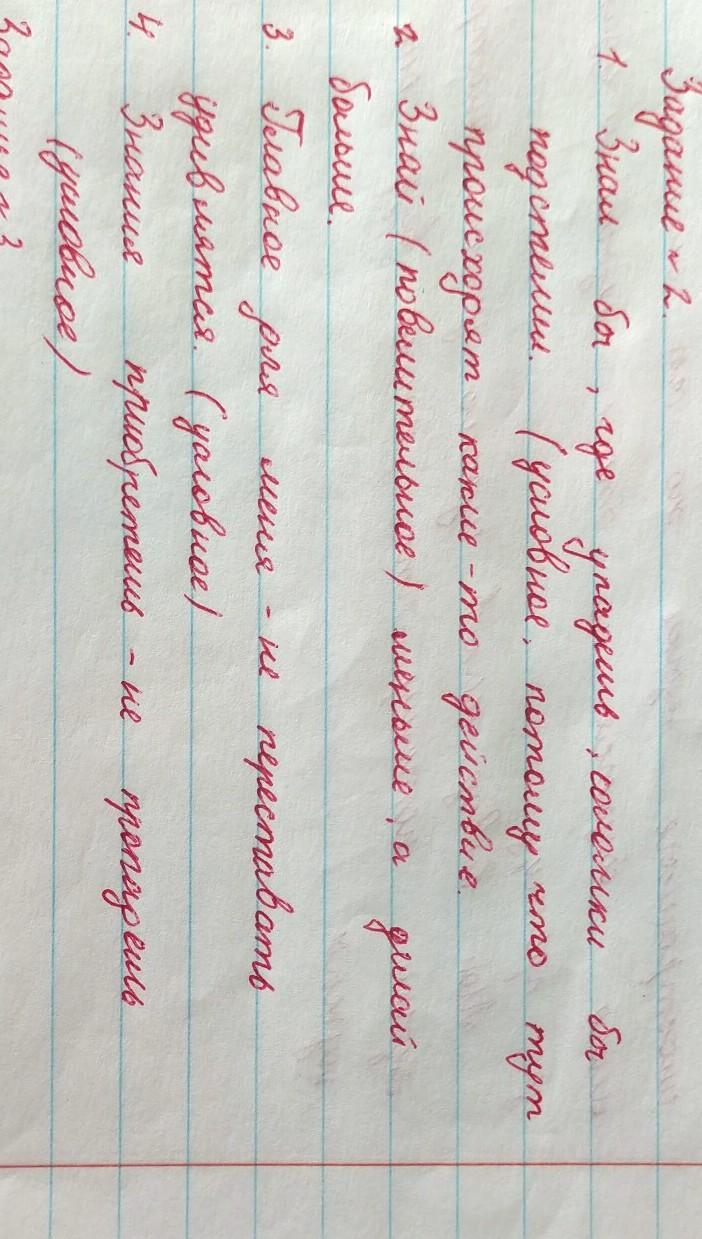 Задание № 2.
1. Знал бы, где упадешь, соломки бы
подстелил. (условное, потому что тут
происходят какие-то действие.
2. Знай (повелительное) меньше, а делай
больше.
3. Главное для меня - не переставать
удивляться. (условное)
4. Знания приобретешь - не пропадешь
(условное)
Задание № 3